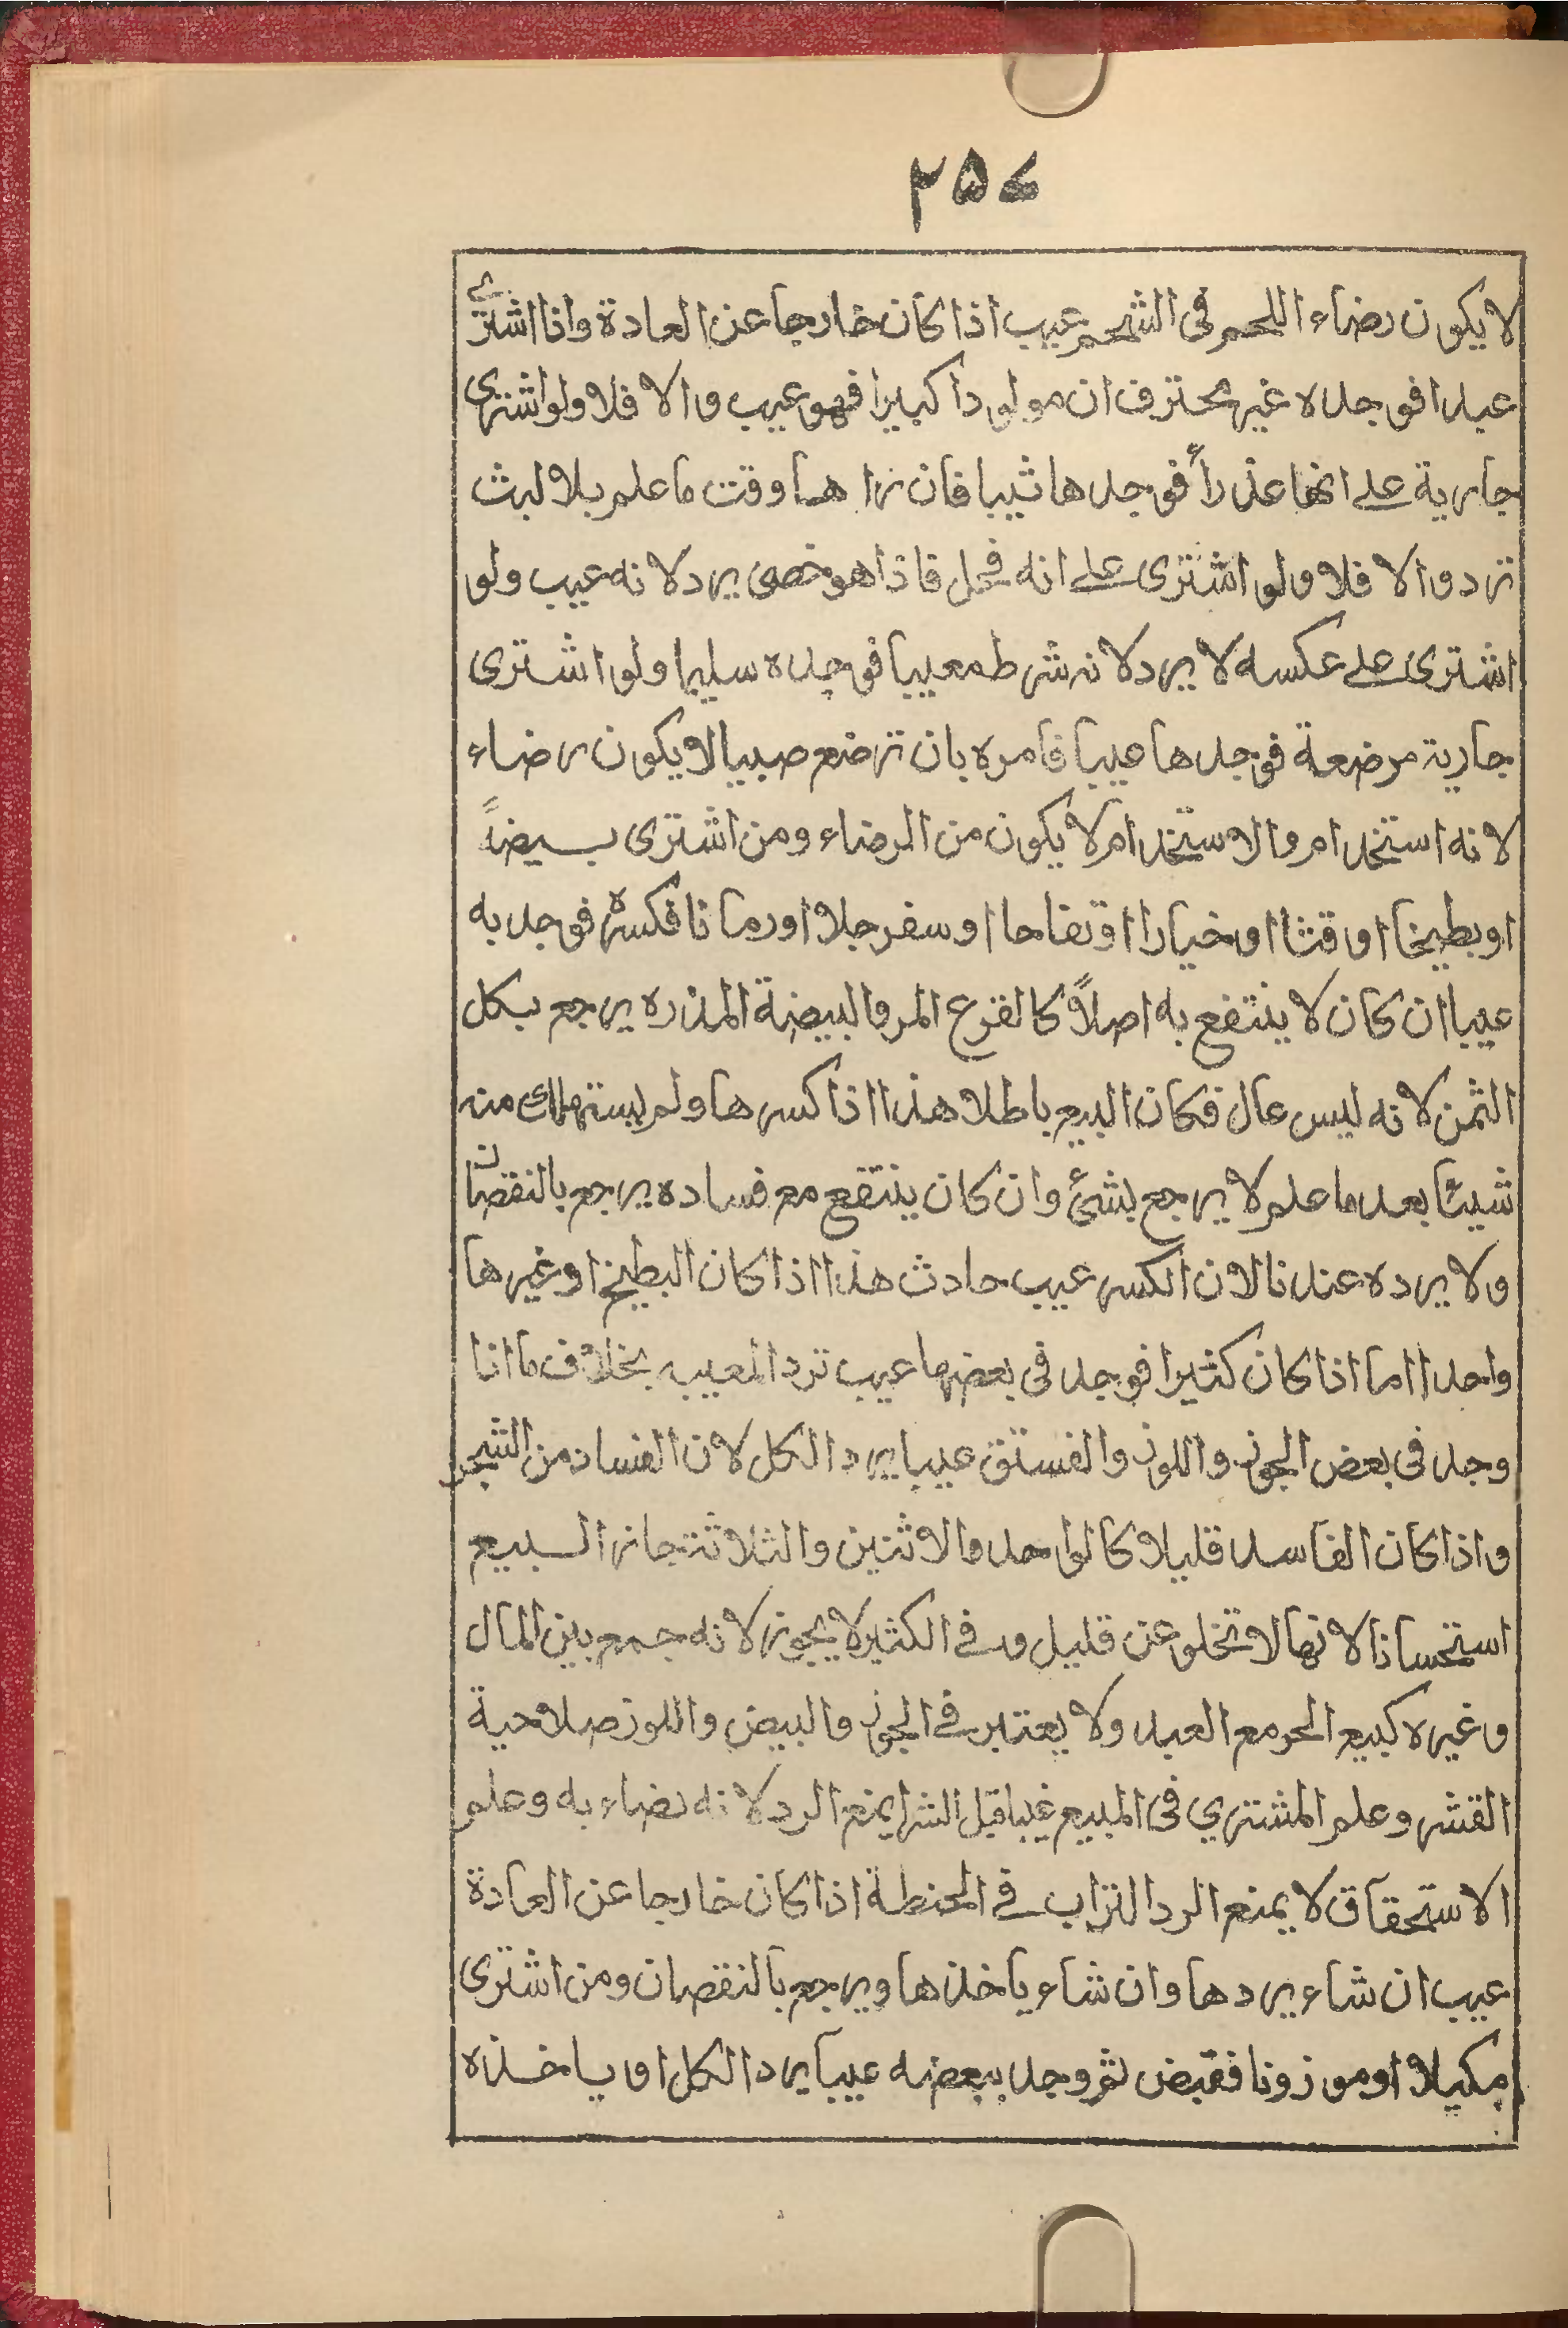 ۲۵۷
لا يكون رضاء اللحم فى الشحم عيب اذا كان خارجا عن العادة واذا اشترے
عبدا فوجده غير محترف ان مولودا كبيرا فهو عيب والا فلا ولو اشترى
جارية علے انها عذرأ فوجدها ثيبا فان زا هما وقت ما علم بلا لبث
ترد والا فلا ولو اشترى علے انه فحل فاذا هو خصى يرد لانه عيب ولو
اشترى علے عكسه لا يرد لانه شرط معيبا فوجده سليما ولو اشترى
جارية مرضعة فوجدها عيبا فامره بان ترضع صبيا لا يكون رضاء
لانه استخدام والاستخدام لا يكون من الرضاء ومن اشترى بيضةً
او بطيخا او قثا او خيارا او تفاحا او سفرجلا او رمانا فكسره فوجد به
عيبا ان كان لا ينتفع به اصلاً كالقرع المر والبيضة المذره يرجع بكل
الثمن لانه ليس بمال فكان البيع باطلا هذا اذا كسرها ولم يستهلك منه
شيئا بعد ما علم لا يرجع بشئ وان كان ينتفع مع فساده يرجع بالنقصان
ولا يرده عندنا لان الكسر عيب حادث هذا اذا كان البطيخ او غيرها
واحدا اما اذا كان كثيرا فوجد فى بعضها عيب ترد المعيبه بخلاف ما اذا
وجد فى بعض الجوز واللوز والفستق عيبا يرد الكل لان الفساد من الشجر
واذا كان الفاسد قليلا كالواحد والاثنين والثلاثة جاز البيع
استحسانا لانها لا تخلو عن قليل وفے الكثير لا يجوز لانه جمع بين المال
وغيره كبيع الحر مع العبد ولا يعتبر فے الجوز والبيض واللوز صلاحية
القشر وعلم المشتري فى المبيع عيبا قبل الشرا يمنع الرد لانه رضاء به وعلم
الاستحقاق لا يمنع الرد التراب فے الحنطة اذا كان خارجا عن العادة
عيب ان شاء يردها وان شاء ياخذها ويرجع بالنقصان ومن اشترى
مكيلا او موزونا فقبض ثم وجد ببعضه عيبا يرد الكل او ياخذه